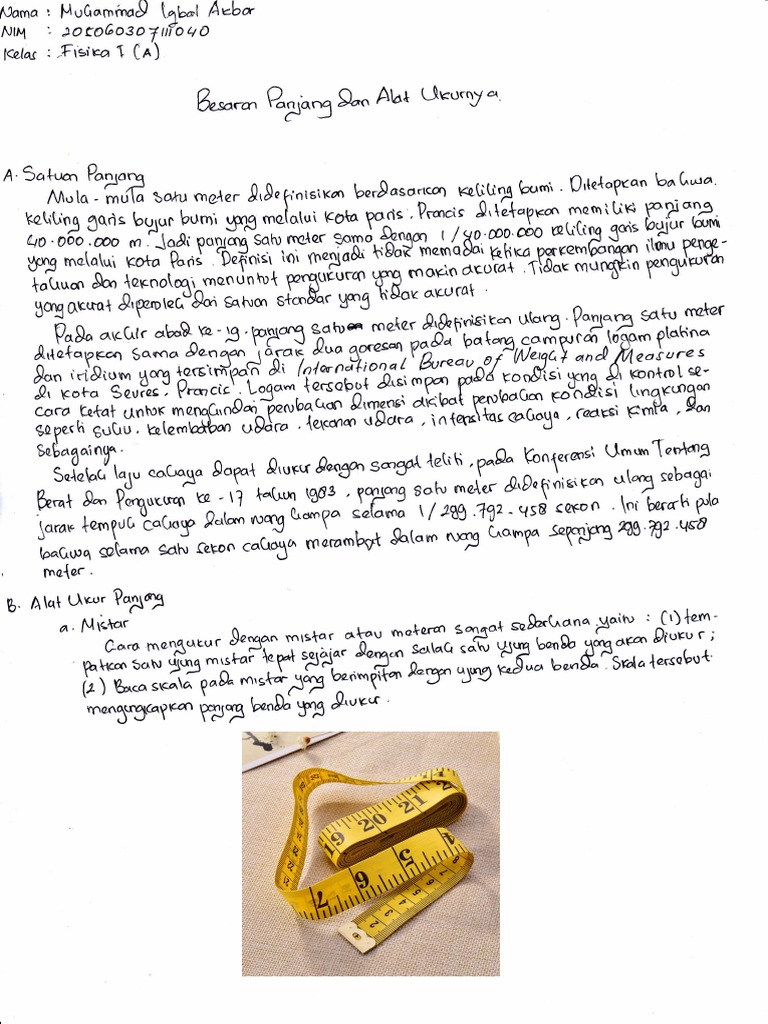 Nama : Muhammad Iqbal Akbar
NIM : 205060307111040
Kelas : Fisika I (A)
Besaran Panjang dan Alat Ukurnya.
A. Satuan Panjang
Mula - mula satu meter didefinisikan berdasarkan keliling bumi. Ditetapkan bahwa
keliling garis bujur bumi yang melalui kota paris, Prancis ditetapkan memiliki panjang
40.000.000 m. Jadi panjang satu meter sama dengan 1/40.000.000 keliling garis bujur bumi
yang melalui kota Paris. Definisi ini menjadi tidak memadai ketika perkembangan ilmu penge-
tahuan dan teknologi menuntut pengukuran yang makin akurat. Tidak mungkin pengukuran
yang akurat diperoleh dari satuan standar yang tidak akurat.
Pada akhir abad ke-19, panjang satu meter didefinisikan ulang. Panjang satu meter
ditetapkan sama dengan jarak dua goresan pada batang campuran logam platina
dan iridium yang tersimpan di International Bureau of Weight and Measures
di kota Sevres, Prancis. Logam tersebut disimpan pada kondisi yang di kontrol se-
cara ketat untuk menghindari perubahan dimensi akibat perubahan kondisi lingkungan
seperti suhu, kelembatban udara, tekanan udara, intensitas cahaya, reaksi kimia, dan
Sebagainya.
Setelah laju cahaya dapat diukur dengan sangat teliti, pada Konferensi Umum Tentang
Berat dan Pengukuran ke-17 tahun 1983, panjang satu meter didefinisikan ulang sebagai
jarak tempuh cahaya dalam ruang hampa selama 1/299.792-458 sekon. Ini berarti pula
bahwa selama satu sekon cahaya merambat dalam ruang hampa sepanjang 299.792.458
meter.
B. Alat Ukur Panjang
a. Mistar
Cara mengukur dengan mistar atau meteran sangat sederhana yaitu : (1) tem-
patkan satu ujung mistar tepat sejajar dengan salah satu ujung benda yang akan diukur;
(2) Baca skala pada mistar yang berimpitan dengan ujung kedua benda. Skala tersebut
mengungkapkan panjang benda yang diukur.
19 20 21
4
5
6
7
2 3 4 5 6 7 8